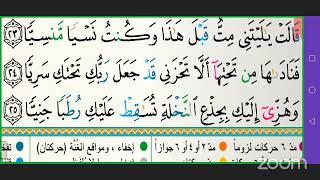 قَالَتْ يَٰلَيْتَنِى مِتُّ قَبْلَ هَٰذَا وَكُنتُ نَسْيًا مَّنسِيًّا ٢٣
فَنَادَىٰهَا مِن تَحْتِهَآ أَلَّا تَحْزَنِى قَدْ جَعَلَ رَبُّكِ تَحْتَكِ سَرِيًّا ٢٤
وَهُزِّىٓ إِلَيْكِ بِجِذْعِ ٱلنَّخْلَةِ تُسَٰقِطْ عَلَيْكِ رُطَبًا جَنِيًّا ٢٥
مدّ ٦ حركات لزوماً مدّ ٢ أو ٤ أو ٦ جوازاً إخفاء، ومواقع الغُنَّة (حركتان)
zoom